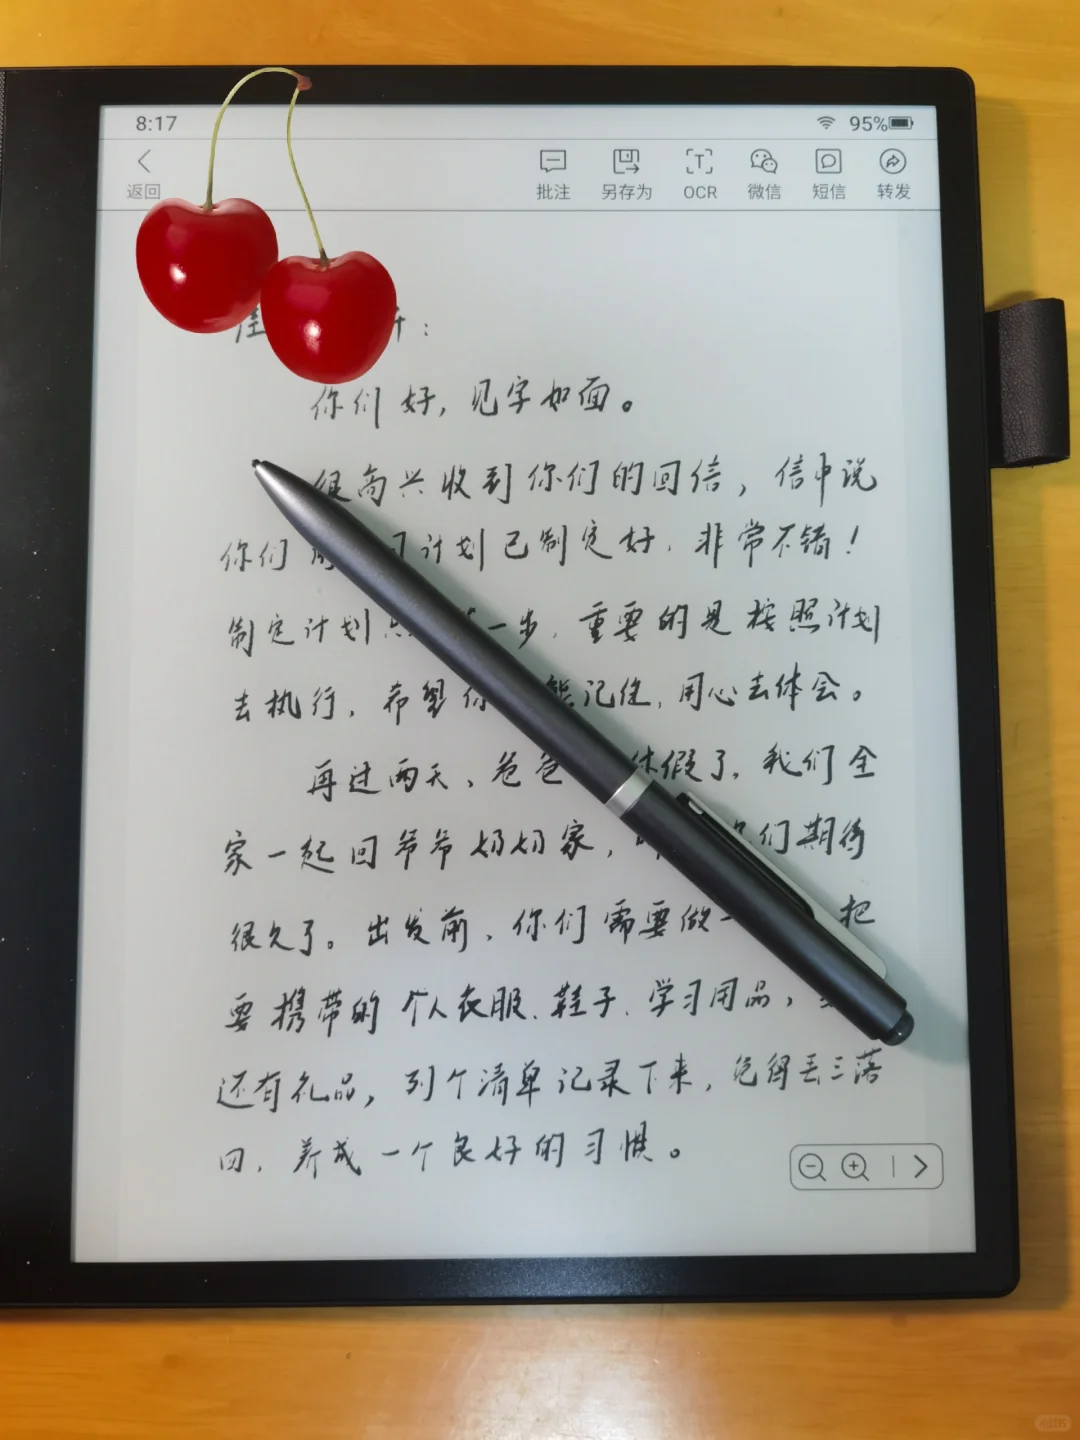 8:17 95%
返回 批注 另存为 OCR 微信 短信 转发
:
你们好,见字如面。
很高兴收到你们的回信,信中说
你们 习计划已制定好,非常不错!
制定计划 一步,重要的是按照计划
去执行,希望你 能记住,用心去体会。
再过两天,爸爸 休假了,我们全
家一起回爷爷奶奶家, 们期待
很久了。出发前,你们需要做一 把
要携带的个人衣服、鞋子、学习用品,
还有礼品,列个清单记录下来,免得丢三落
四,养成一个良好的习惯。